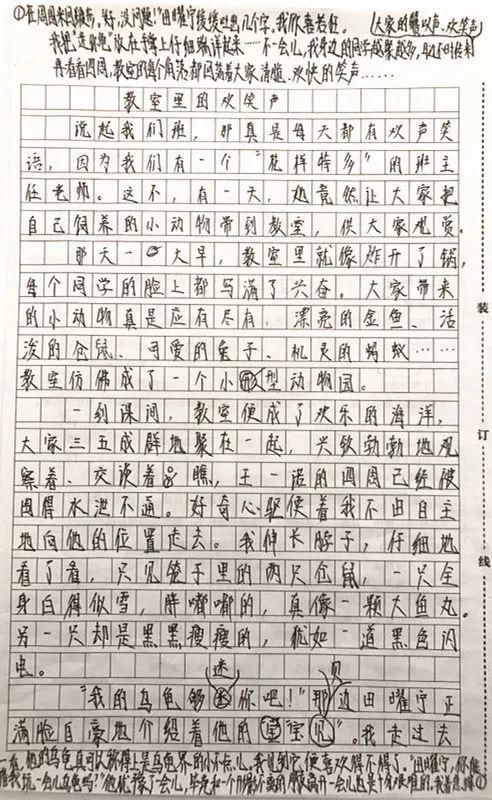 ①在周围来回踱步,"好,没问题!"田曜宁缓缓吐出几个字。我欣喜若狂。
大家的赞叹声、欢笑声
我把"迷你龟"放在手掌上仔细端详起来……不一会儿,我身边的同学越聚越多,
再看看四周,教室的每个角落都回荡着大家清脆、欢快的笑声……
教室里的欢笑声
说起我们班,那真是每天都有欢声笑
语,因为我们有一个"花样特多"的班主
任老师。这不,有一天,她竟然让大家把
自己饲养的小动物带到教室,供大家观赏。
那天一大早,教室里就像炸开了锅,
每个同学的脸上都写满了兴奋。大家带来
的小动物真是应有尽有:漂亮的金鱼、活
泼的仓鼠、可爱的兔子、机灵的蚂蚁……
教室仿佛成了一个小型动物园。
一到课间,教室便成了欢乐的海洋,
大家三五成群地聚在一起,兴致勃勃地观
察着、交谈着。瞧,王一诺的四周已经被
围得水泄不通。好奇心驱使着我不由自主
地向他的位置走去。我伸长脖子,仔细地
看了看,只见笼子里的两只仓鼠,一只全
身白得似雪,胖嘟嘟的,真像一颗大鱼丸。
另一只却是黑黑瘦瘦的,犹如一道黑色闪
电。
迷 贝
"我的乌龟够迷你吧!"那边田曜宁正
满脸自豪地介绍着他的宝贝。我走过去
一看,他的乌龟真可以称得上是乌龟界的小不点儿。我见到它便喜欢得不得了。"田曜宁,你能
借我玩一会儿乌龟吗?"他犹豫了一会儿,毕竟和一个形影不离的朋友离开一会儿也是十分艰难的。我着急地①
装
订
线